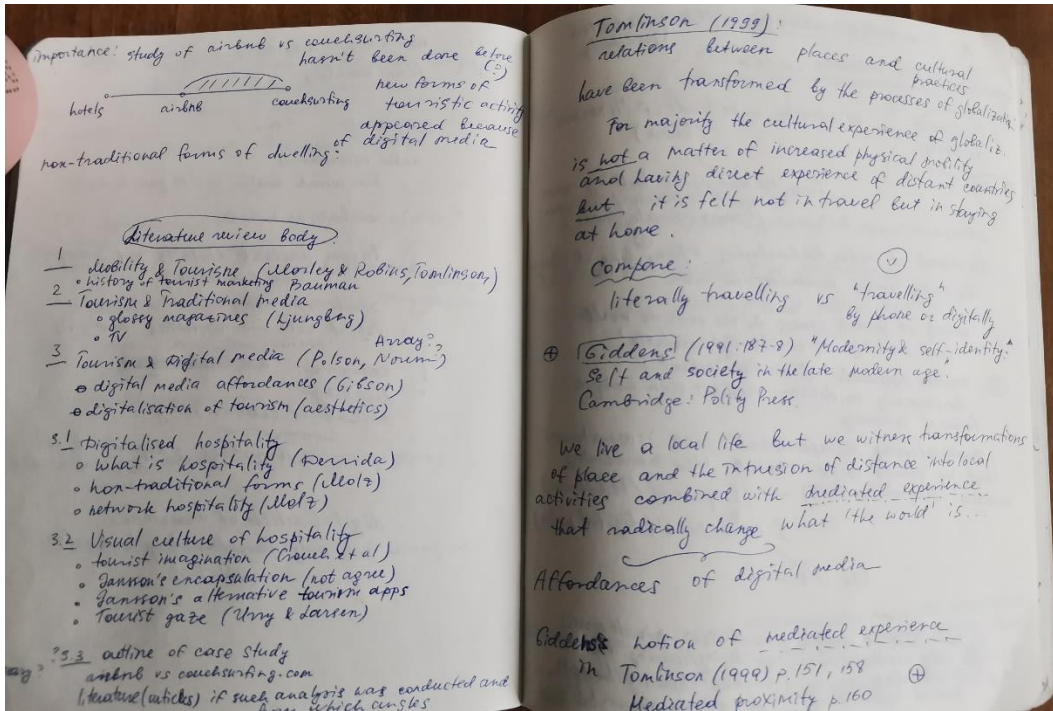 importance: study of airbnb vs couchsurting
hasn't been done before
(?)
hotels airbnb couchsurting
new forms of
touristic activity
appeared because
of digital media
non-traditional forms of dwelling?
Literature review body.
1 Mobility & Tourisme (Morley & Robins, Tomlinson,)
• history of tourist marketing Bauman
2 Tourism & Traditional media
• glossy magazines (Ljungberg)
• TV
Array?
3 Tourism & Digital media (Polson, )
• digital media affordances (Gibson)
• digitalisation of tourism (aesthetics)
3.1 Digitalised hospitality
• what is hospitality (Derrida)
• non-traditional forms (Molz)
• network hospitality (Molz)
3.2 Visual culture of hospitality
• tourist imagination (Crouch et al)
• Jansson's encapsulation (not agree)
• Jansson's alternative tourism apps
• Tourist gaze (Urry & Larsen)
? 3.3 outline of case study
airbnb vs couchsurting.com
literature (articles) if such analysis was conducted and
which angles
Tomlinson (1999):
relations between places and cultural
practices
have been transformed by the processes of globalization.
For majority the cultural experience of globaliz.
is not a matter of increased physical mobility
and having direct experience of distant countries
but it is felt not in travel but in staying
at home.
Compare:
literally travelling vs "travelling"
by phone or digitally
⊕ Giddens (1991:187-8) "Modernity & self-identity.
Self and society in the late modern age".
Cambridge: Polity Press.
We live a local life but we witness transformations
of place and the intrusion of distance into local
activities combined with mediated experience
that radically change what 'the world' is...
Affordances of digital media
Giddens's notion of mediated experience
in Tomlinson (1999) p.151, 158 ⊕
Mediated proximity p.160